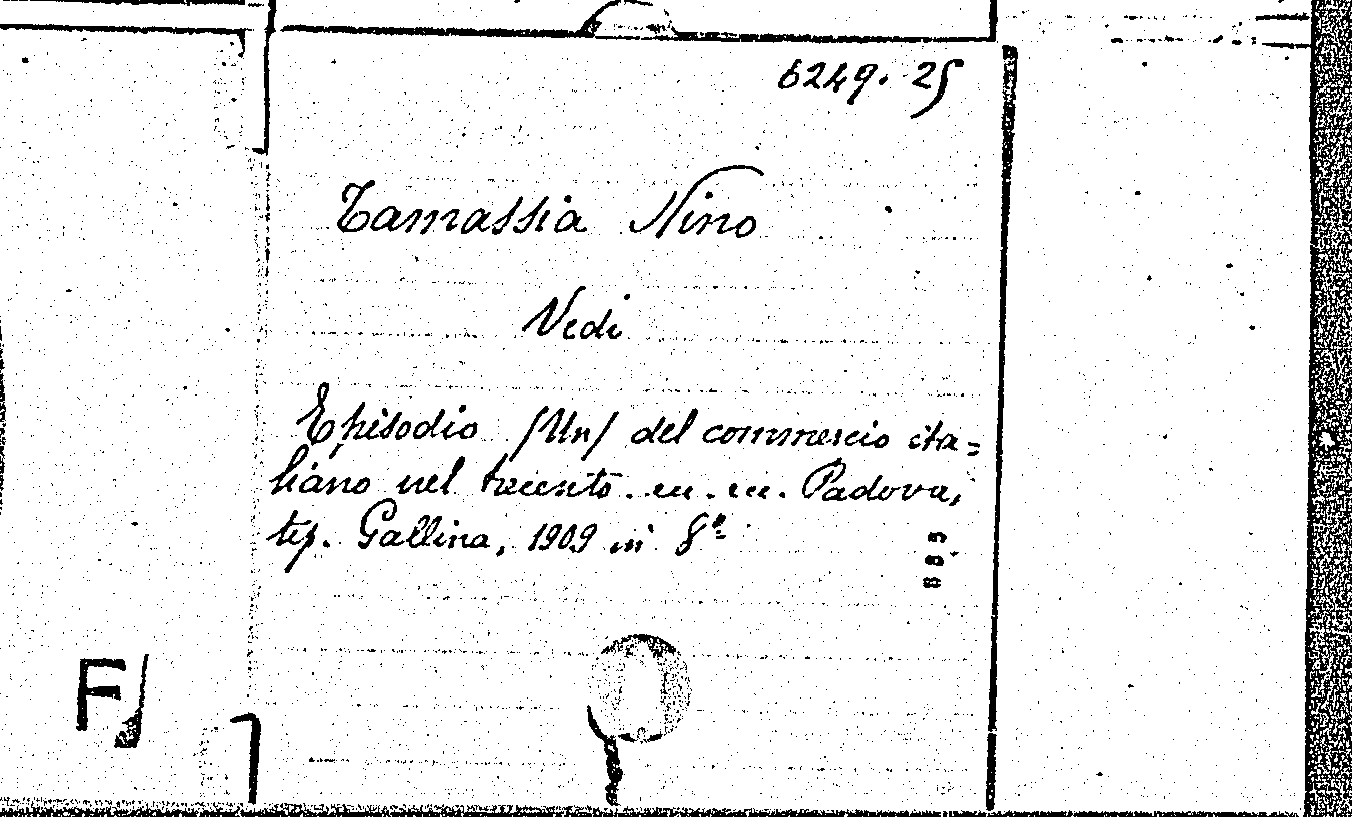 6249. 25
Tamassia Nino
Vedi
Episodio /Un/ del commercio ita=
liano nel trecento. ecc. ecc. Padova,
tip. Gallina, 1909 in 8º
885
F